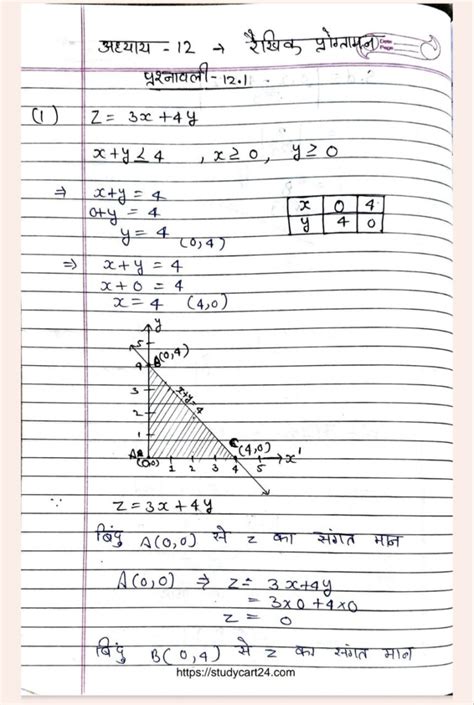 अध्याय - 12 → रैखिक प्रोग्रामन
प्रश्नावली - 12.1
(1) Z = 3x + 4y
x+y ≤ 4 , x ≥ 0 , y ≥ 0
⇒ x+y = 4
0+y = 4
y = 4 (0,4)
x 0 4
y 4 0
⇒ x+y = 4
x+0 = 4
x = 4 (4,0)
y
5
4 B(0,4)
3 x+y=4
2
1 C(4,0)
A (0,0) 1 2 3 4 5 x'
∵ Z = 3x + 4y
बिंदु A(0,0) से z का संगत मान
A(0,0) ⇒ Z = 3x+4y
= 3×0 + 4×0
Z = 0
बिंदु B(0,4) से z का संगत मान
https://studycart24.com